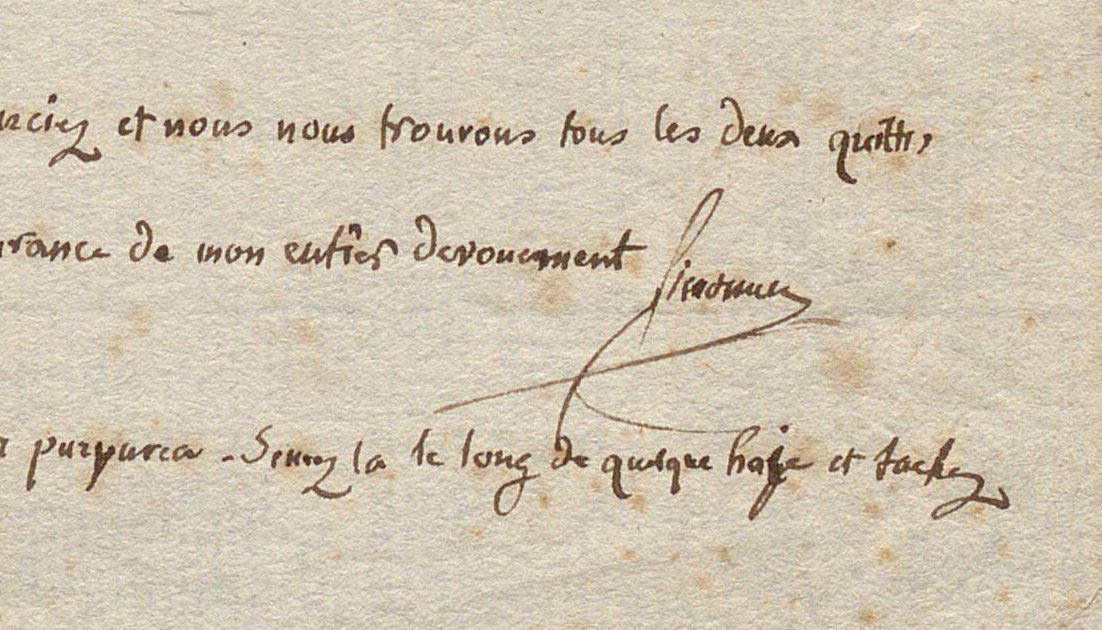 et nous nous trouvons tous les deux quittes
de mon entier devouement
purpurea - Semez la le long de quelque haije et tachez